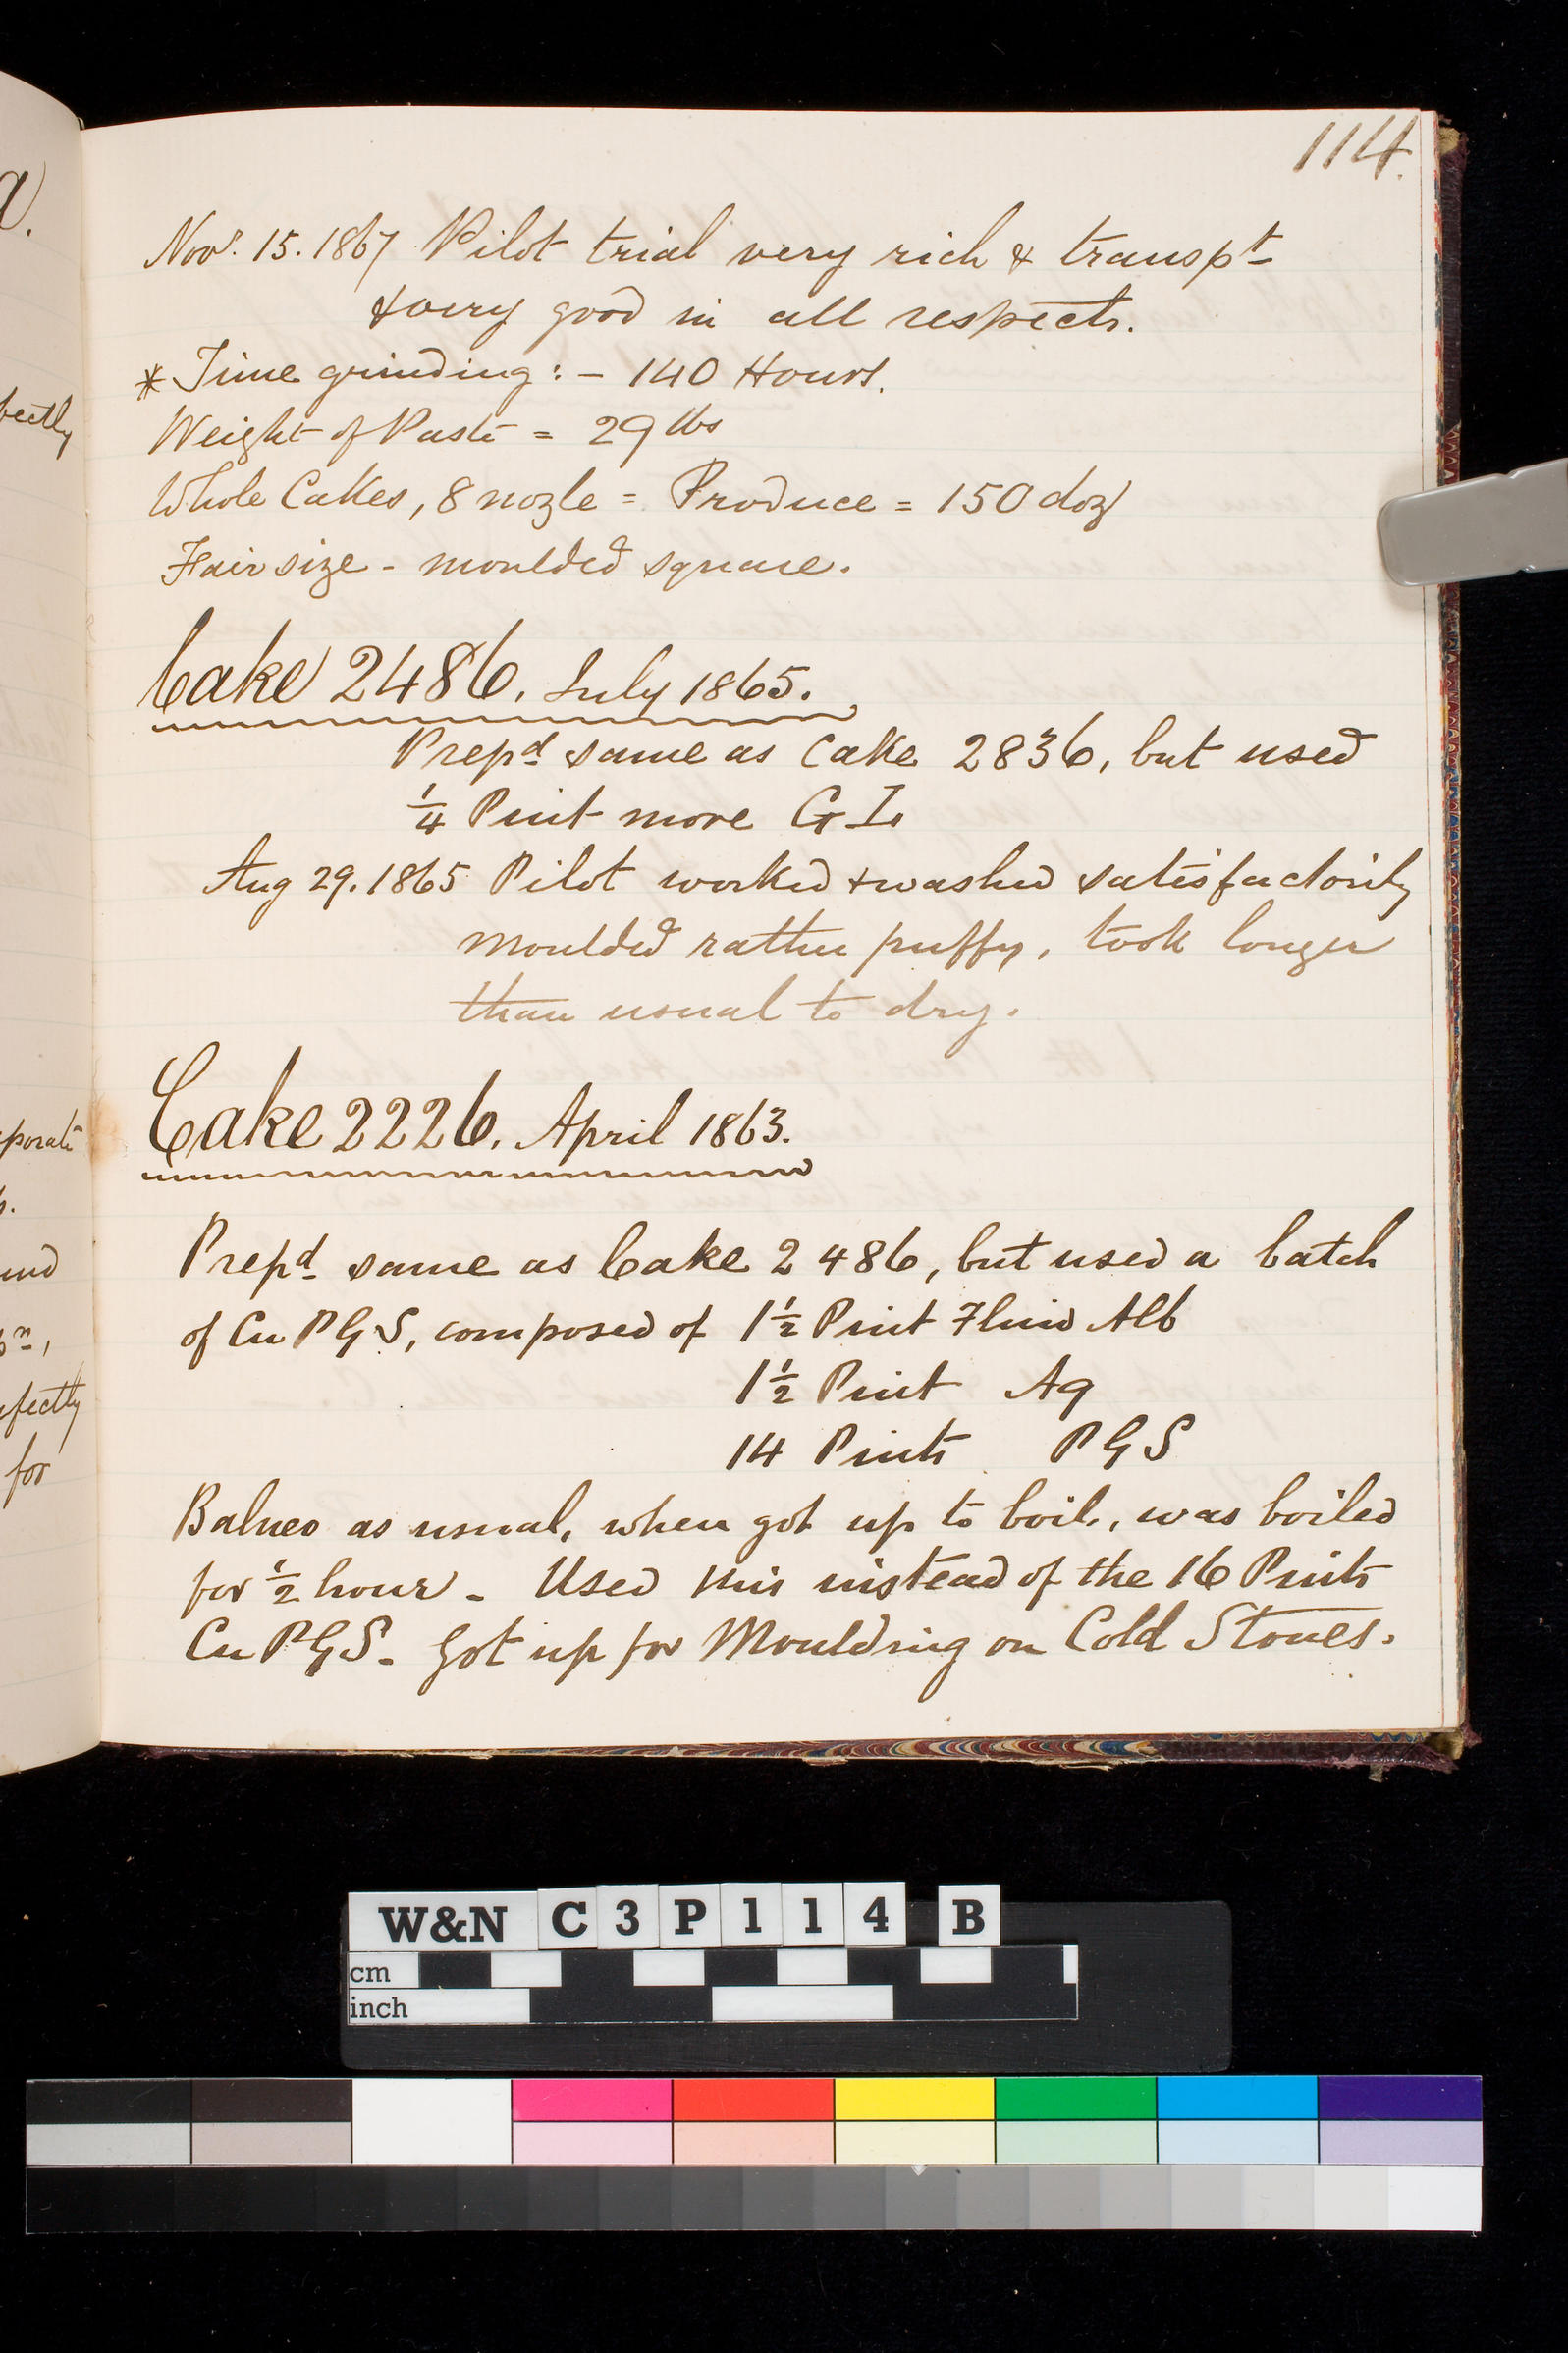 114.
Novr. 15. 1867 Pilot trial very rich & transpt
& very good in all respects.
* Time grinding : - 140 Hours.
Weight of Paste = 29 lbs
Whole Cakes, 8 nozle = Produce = 150 doz
Fair size - moulded square.
Cake 2486. July 1865.
Prepd same as Cake 2836, but used
1/4 Pint more G I.
Aug 29. 1865 Pilot worked & washed satisfactorily
moulded rather puffy, took longer
than usual to dry.
Cake 2226. April 1863.
Prepd same as Cake 2486, but used a batch
of Cu P G S, composed of 1 1/2 Pint Fluid Alb
1 1/2 Pint Aq
14 Pints P G S
Balneo as usual, when got up to boil, was boiled
for 1/2 hour - Used this instead of the 16 Pints
Cu P G S - Got up for Moulding on Cold Stones.
a.
fectly
porate
s.
und
n,
fectly
for
W&N C 3 P 1 1 4 B
cm
inch